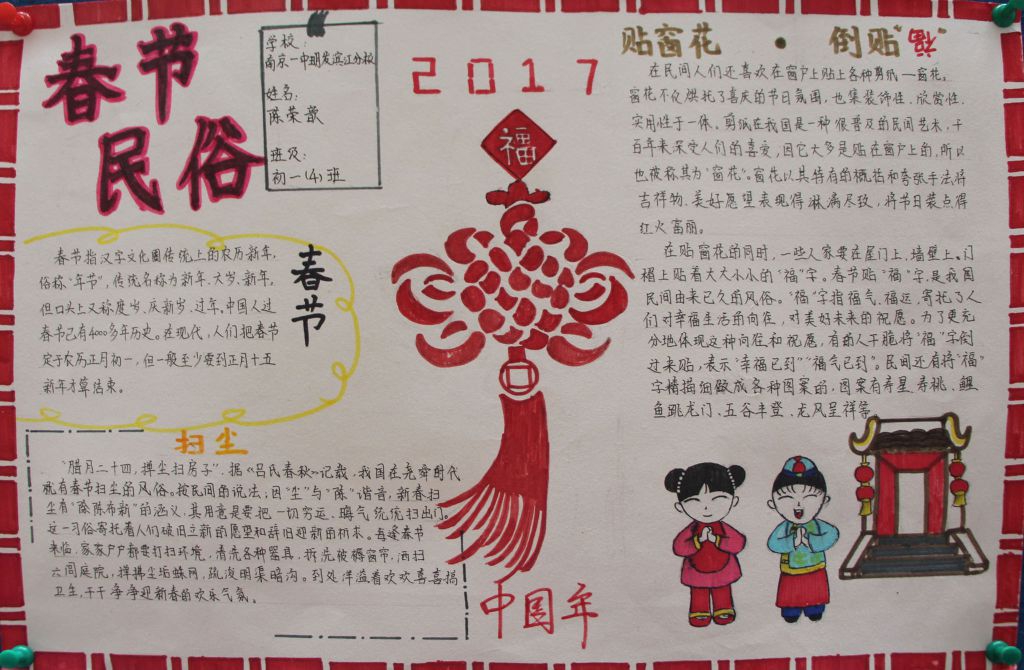 春节
民俗
学校：
南京一中明发滨江分校
姓名：
陈荣歆
班级：
初一(4)班
2017
福
春节
春节指汉字文化圈传统上的农历新年,
俗称"年节",传统名称为新年、大岁、新年,
但口头上又称度岁、庆新岁、过年。中国人过
春节已有4000多年历史。在现代,人们把春节
定于农历正月初一,但一般至少要到正月十五
新年才算结束。
扫尘
"腊月二十四,掸尘扫房子"。据《吕氏春秋》记载,我国在尧舜时代
就有春节扫尘的风俗。按民间的说法:因"尘"与"陈"谐音,新春扫
尘有"除陈布新"的涵义,其用意是要把一切穷运、晦气统统扫出门。
这一习俗寄托着人们破旧立新的愿望和辞旧迎新的祈求。每逢春节
来临,家家户户都要打扫环境,清洗各种器具,拆洗被褥窗帘,洒扫
六闾庭院,掸拂尘垢蛛网,疏浚明渠暗沟。到处洋溢着欢欢喜喜搞
卫生,干干净净迎新春的欢乐气氛。
中国年
贴窗花 · 倒贴"福"
在民间人们还喜欢在窗户上贴上各种剪纸一窗花。
窗花不仅烘托了喜庆的节日氛围,也集装饰性、欣赏性、
实用性于一体。剪纸在我国是一种很普及的民间艺术,千
百年来深受人们的喜爱,因它大多是贴在窗户上的,所以
也被称其为"窗花"。窗花以其特有的概括和夸张手法将
吉祥物、美好愿望表现得淋漓尽致,将节日装点得
红火富丽。
在贴窗花的同时,一些人家要在屋门上、墙壁上、门
楣上贴着大大小小的"福"字。春节贴"福"字,是我国
民间由来已久的风俗。"福"字指福气、福运,寄托了人
们对幸福生活的向往,对美好未来的祝愿。为了更充
分地体现这种向往和祝愿,有的人干脆将"福"字倒
过来贴,表示"幸福已到""福气已到"。民间还有将"福"
字精描细做成各种图案的,图案有寿星、寿桃、鲤
鱼跳龙门、五谷丰登、龙凤呈祥等。